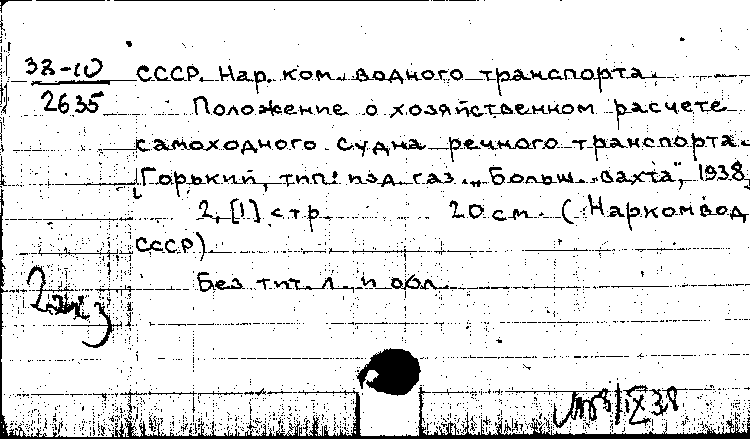 38-10
2635
СССР. Нар. ком. водного транспорта.
Положение о хозяйственном расчете
самоходного судна речного транспорта.
[Горький, тип. изд. газ. „Больш. вахта", 1938,
2, [1] стр. 20 см. (Наркомвод
СССР).
Без тит. л. и обл.
2 экз